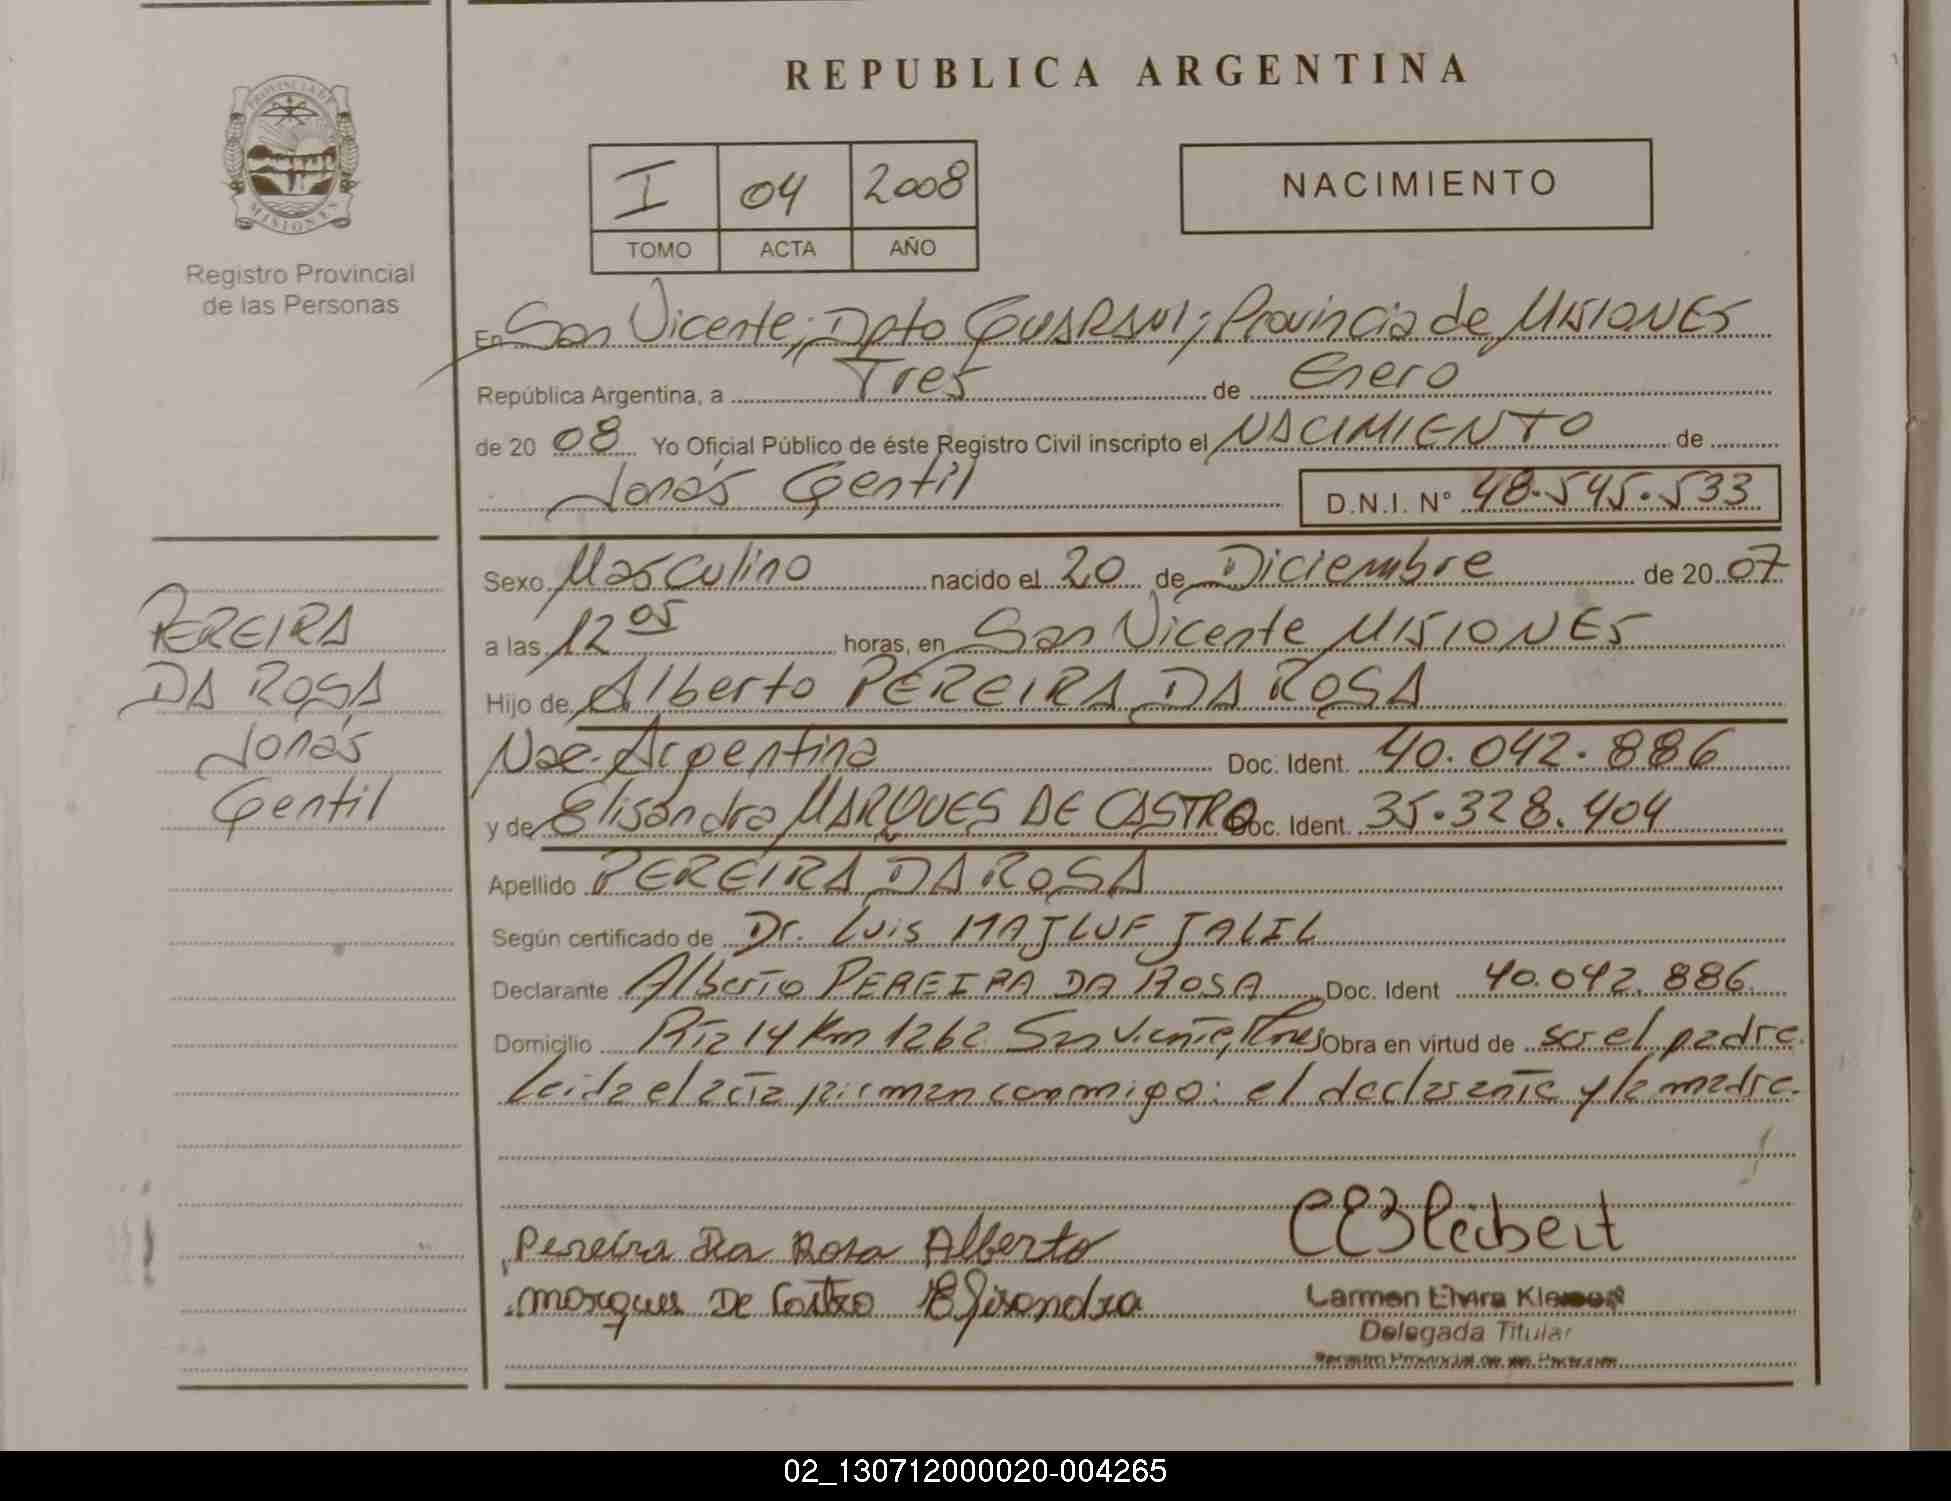 REPUBLICA ARGENTINA
PROVINCIA DE
MISIONES
Registro Provincial
de las Personas
I 04 2008
TOMO ACTA AÑO
NACIMIENTO
En San Vicente; Dpto GUARANI; Provincia de MISIONES
República Argentina, a Tres de Enero
de 20 08 Yo Oficial Público de éste Registro Civil inscripto el NACIMIENTO de
Jonás Gentil D.N.I. N° 48.545.533
PEREIRA
DA ROSA
Jonás
Gentil
Sexo Masculino nacido el 20 de Diciembre de 20 07
a las 12 05 horas, en San Vicente MISIONES
Hijo de Alberto PEREIRA DA ROSA
Nac. Argentina Doc. Ident. 40.042.886
y de Elisandra MARQUES DE CASTRO Doc. Ident. 35.328.404
Apellido PEREIRA DA ROSA
Según certificado de Dr. Luis MAJLUF JALIL
Declarante Alberto PEREIRA DA ROSA Doc. Ident 40.042.886.
Domicilio Rta 14 Km 1262 San Vicente, Mnes Obra en virtud de ser el padre.
Leida el acta firman conmigo: el declarante y la madre.
Pereira Da Rosa Alberto
Marques De Castro Elisandra
Carmen Elvira
Delegada Titular
Registro Provincial de las Personas
02_130712000020-004265